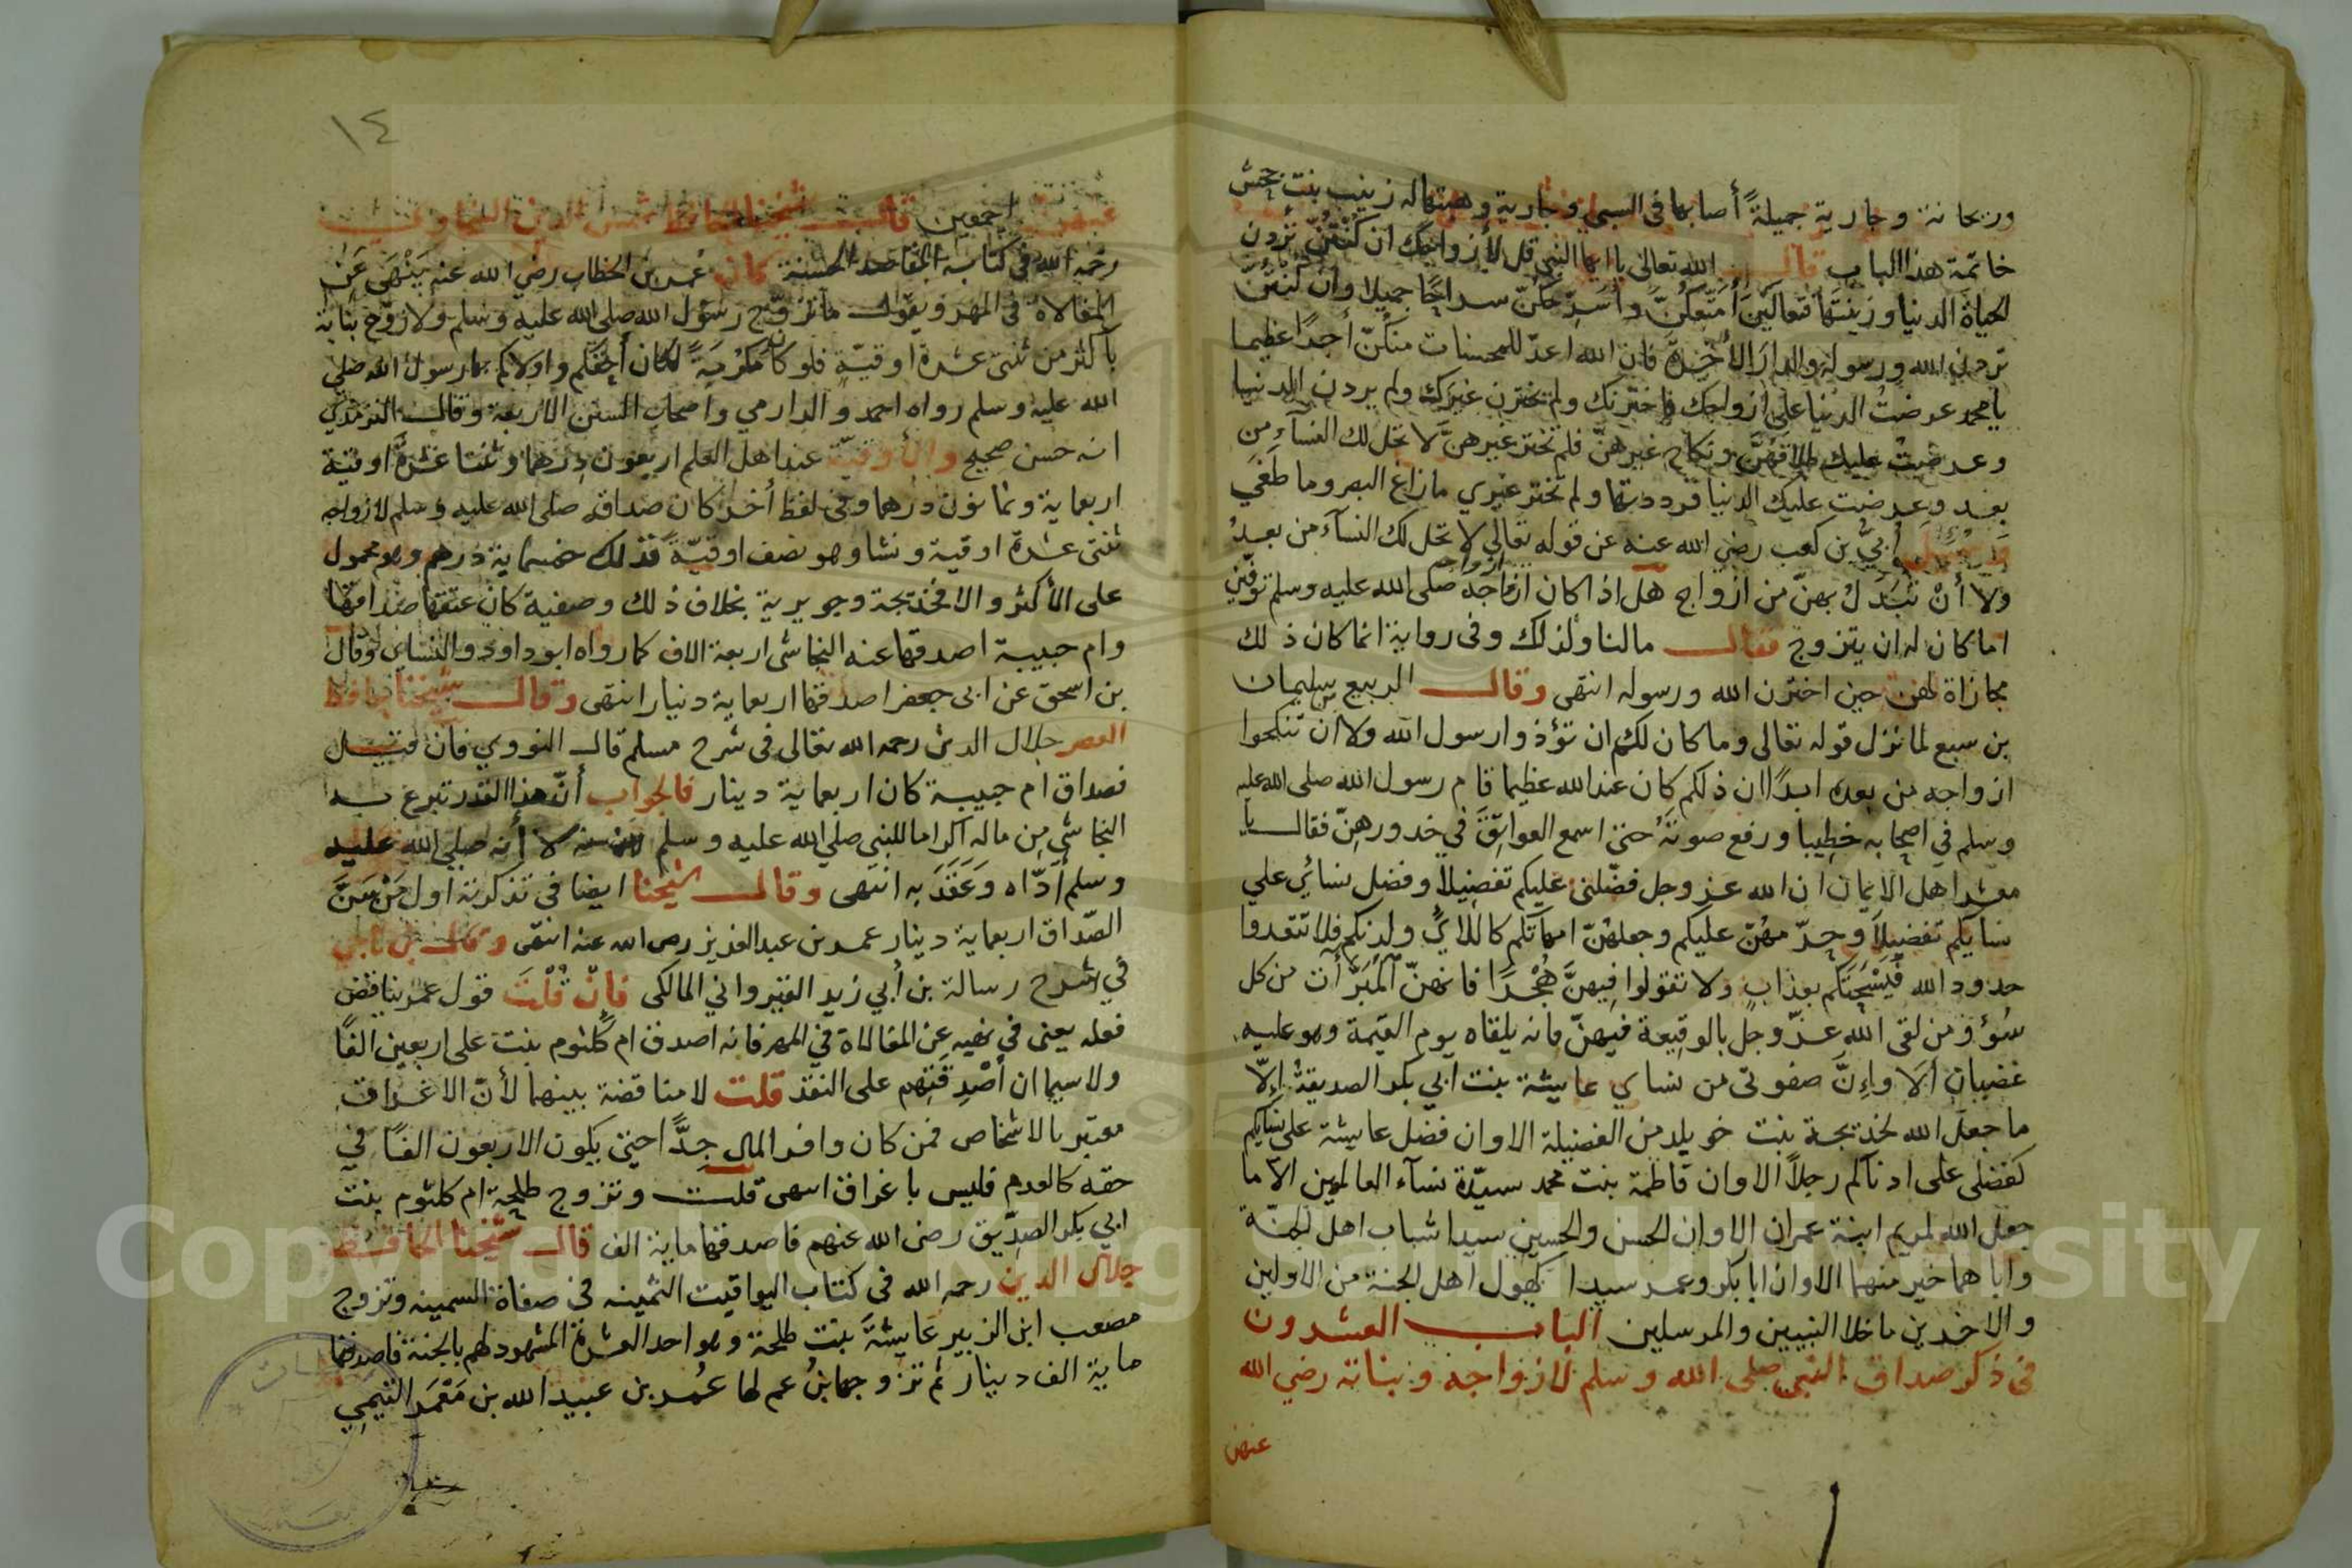 وريحانة وجارية جميلةً أصابها في السبي وجارية وهبتها له زينب بنت جحش
خاتمة هذا الباب قال الله تعالى يا ايها النبي قل لأزواجك ان كُنْتُنَّ تُرِدن
الحياةَ الدنيا وزينتَهَا فتعالَيْنَ أُمَتِّعْكُنَّ وأُسَرِّحْكُنَّ سراحًا جميلا وان كُنْتُنَّ
تردن الله ورسوله والدارَ الأخِرةَ فان الله اعدّ للمحسنات منكُنّ أجرًا عظيما
يا محمد عرضتُ الدنيا على ازواجك فاخترنك ولم يخترن غيرك ولم يردن الدنيا
وعرضتُ عليك طلاقهُنَّ ونكاح غيرهنّ فلم تختر غيرهنّ لا تحل لك النسآء من
بعد وعرضت عليك الدنيا فرددتها ولم تختر غيري ما زاغ البصر وما طَغَي
وسُئل أُبيُّ بن كعب رضي الله عنه عن قوله تعالي لا تحل لك النسآء من بعدُ
ولا أنْ تَبَدَّلَ بهنّ من أزواج هل اذا كان ازواجه صلى الله عليه وسلم توفين
اما كان له ان يتزوج فقال مالنا ولذلك وفى رواية انما كان ذلك
مجازاة لهن حين اخترن الله ورسوله انتهى وقال الربيع بن سليمان
بن سبع لما نزل قوله تعالى وما كان لكم ان تؤذوا رسول الله ولا ان تنكحوا
ازواجه من بعده ابدًا ان ذلكم كان عند الله عظيما قام رسول الله صلى الله عليه
وسلم في اصحابه خطيبا ورفع صوتَهُ حتى اسمع العواتِقَ في خدورهِنّ فقال يا
معشر اهل الايمان ان الله عز وجل فضّلني عليكم تفضيلاً وفضل نسائي علي
نسآيكم تفضيلاً وحرّمهُنّ عليكم وجعلهُنّ امهاتكم كاللاي ولدنكم فلا تتعدوا
حدود الله فَيُسْحِتَكم بعذابٍ ولا تقولوا فِيهنَّ هُجْرًا فانهنّ المُبَرَّأت من كل
سُوْءٍ فمن لقى الله عزّ وجل بالوقيعة فيهنّ فانه يلقاه يوم القيمة وهو عليه
غضبان ألَا وإِنَّ صفوتى من نساي عايشة بنت ابي بكر الصديقة إلاّ
ما جعل الله لخديجة بنت خويلد من الفضيلة الا وان فضل عايشة على نسآيكم
كفضلى على ادناكم رجلاً الا وان فاطمة بنت محمد سيدّة نسآء العالمين الاّ ما
جعل الله لمريم ابنة عمران الا وان الحسن والحسين سيدا شباب اهل الجنّة
واباهما خير منهما الا وان ابا بكر وعمر سيدا كهول اهل الجنة من الاولين
والاخرين ما خلا النبيين والمرسلين الباب العشرون
فى ذكر صداق النبي صلى الله وسلم لازواجه وبناته رضي الله
عنهن
١٤
عنهن اجمعين قال شيخنا الحافظ شمس الدين السخاوي
رحمه الله في كتابه المقاصد الحسنة كان عُمر بن الخطاب رضي الله عنه يَنْهَى عَن
المغالاة فى المهر ويقول ما تزوّج رسول الله صلى الله عليه وسلم ولا زوّج بناته
بأكثر من ثنتى عشرة اوقيّة فلو كان مَكرُمَةً لكان أحقكم واولاكم بها رسول الله صلى
الله عليه وسلم رواه احمد والدارمي واصحاب السنن الاربعة وقال الترمذي
انه حسن صحيح والأُوقيّة عند اهل العلم اربعون دِرهما وثنتا عَشْرَةَ اوقية
اربعماية وثمانون درهما وفى لفظ أخر كان صداقه صلى الله عليه وسلم لازواجه
ثنتى عشرة اوقية ونشا وهو نصف اوقيّة فذلك خمسماية درهم وهو محمول
على الأكثر والا فخديجة وجويرية بخلاف ذلك وصفية كان عتقها صداقها
وام حبيبة اصدقها عنه النجاشى اربعة الاف كما رواه ابو داود والنساى وقال
بن اسحق عن ابى جعفر اصدقها اربعماية دينار انتهى وقال شيخنا حافظ
العصر جلال الدين رحمه الله تعالى فى شرح مسلم قال النووي فان قيل
فصداق ام حبيبة كان اربعماية دينار فالجواب أنّ هذا القدر تبرع به
النجاشي مِن ماله اكراما للنبى صلي الله عليه وسلم لا أنه صلي الله عليه
وسلم أدّاه وَعَقَدَ به انتهى وقال شيخنا ايضا في تذكرته اول مَنْ سَنَّ
الصّداق اربعماية دينار عمر بن عبد العزيز رضى الله عنه انتهى وقال بن ناجي
في شرح رسالة بن أبي زيد القيرواني المالكى فإنْ قُلْتَ قول عمر يناقض
فعله يعنى في نهيه عِن المغالاة في المهر فانه اصدق ام كلثوم بنت على اربعين الفًا
ولا سيما ان أصْدِقَتِهم على النقد قلت لا مناقضة بينهما لأنّ الاغراق
معتبر بالاشخاص فمن كان وافر المال جدًّا حتى يكون الاربعون الفًا في
حقه كالعدم فليس باغراق انتهى قلت وتزوج طلحة ام كلثوم بنت
ابي بكر الصدّيق رضى الله عنهم فاصدقها ماية الف قال شيخنا الحافظ
جلال الدين رحمه الله فى كتاب اليواقيت الثمينه في صفاة السمينه وتزوج
مصعب ابن الزبير عايشةَ بنت طلحة وهو احد العشرة المشهود لهم بالجنة فاصدقها
ماية الف دينار ثم تزوجها بنُ عم لها عُمر بن عبيد الله بن مَعْمَر التيمي
Copyright © King Saud University